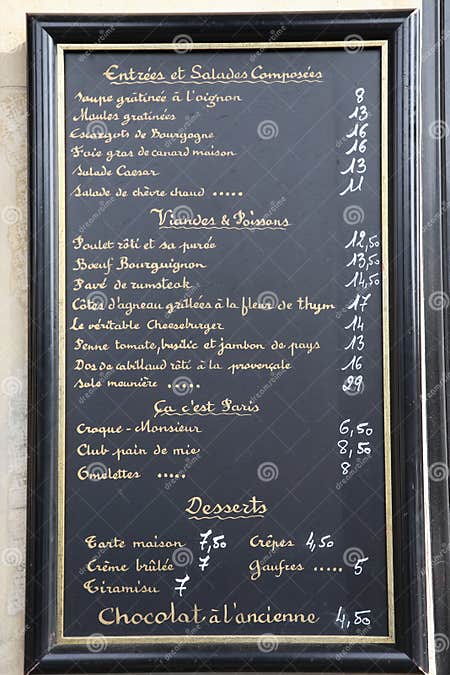 Entrées et Salades Composées
Soupe grâtinée à l'oignon 8
Moules gratinées 13
Escargots de Bourgogne 16
Foie gras de canard maison 16
Salade Caesar 13
Salade de chèvre chaud ..... 11
Viandes & Poissons
Poulet rôti et sa purée 12,50
Bœuf Bourguignon 13,50
Pavé de rumsteak 14,50
Côtes d'agneau grillées à la fleur de thym 17
Le véritable Cheeseburger 14
Penne tomate, basilic et jambon de pays 13
Dos de cabillaud rôti à la provençale 16
Sole meunière ..... 29
Ça c'est Paris
Croque-Monsieur 6,50
Club pain de mie 8,50
Omelettes ..... 8
Desserts
Tarte maison 7,50 Crêpes 4,50
Crème brûlée 7 Gaufres ..... 5
Tiramisu 7
Chocolat à l'ancienne 4,50